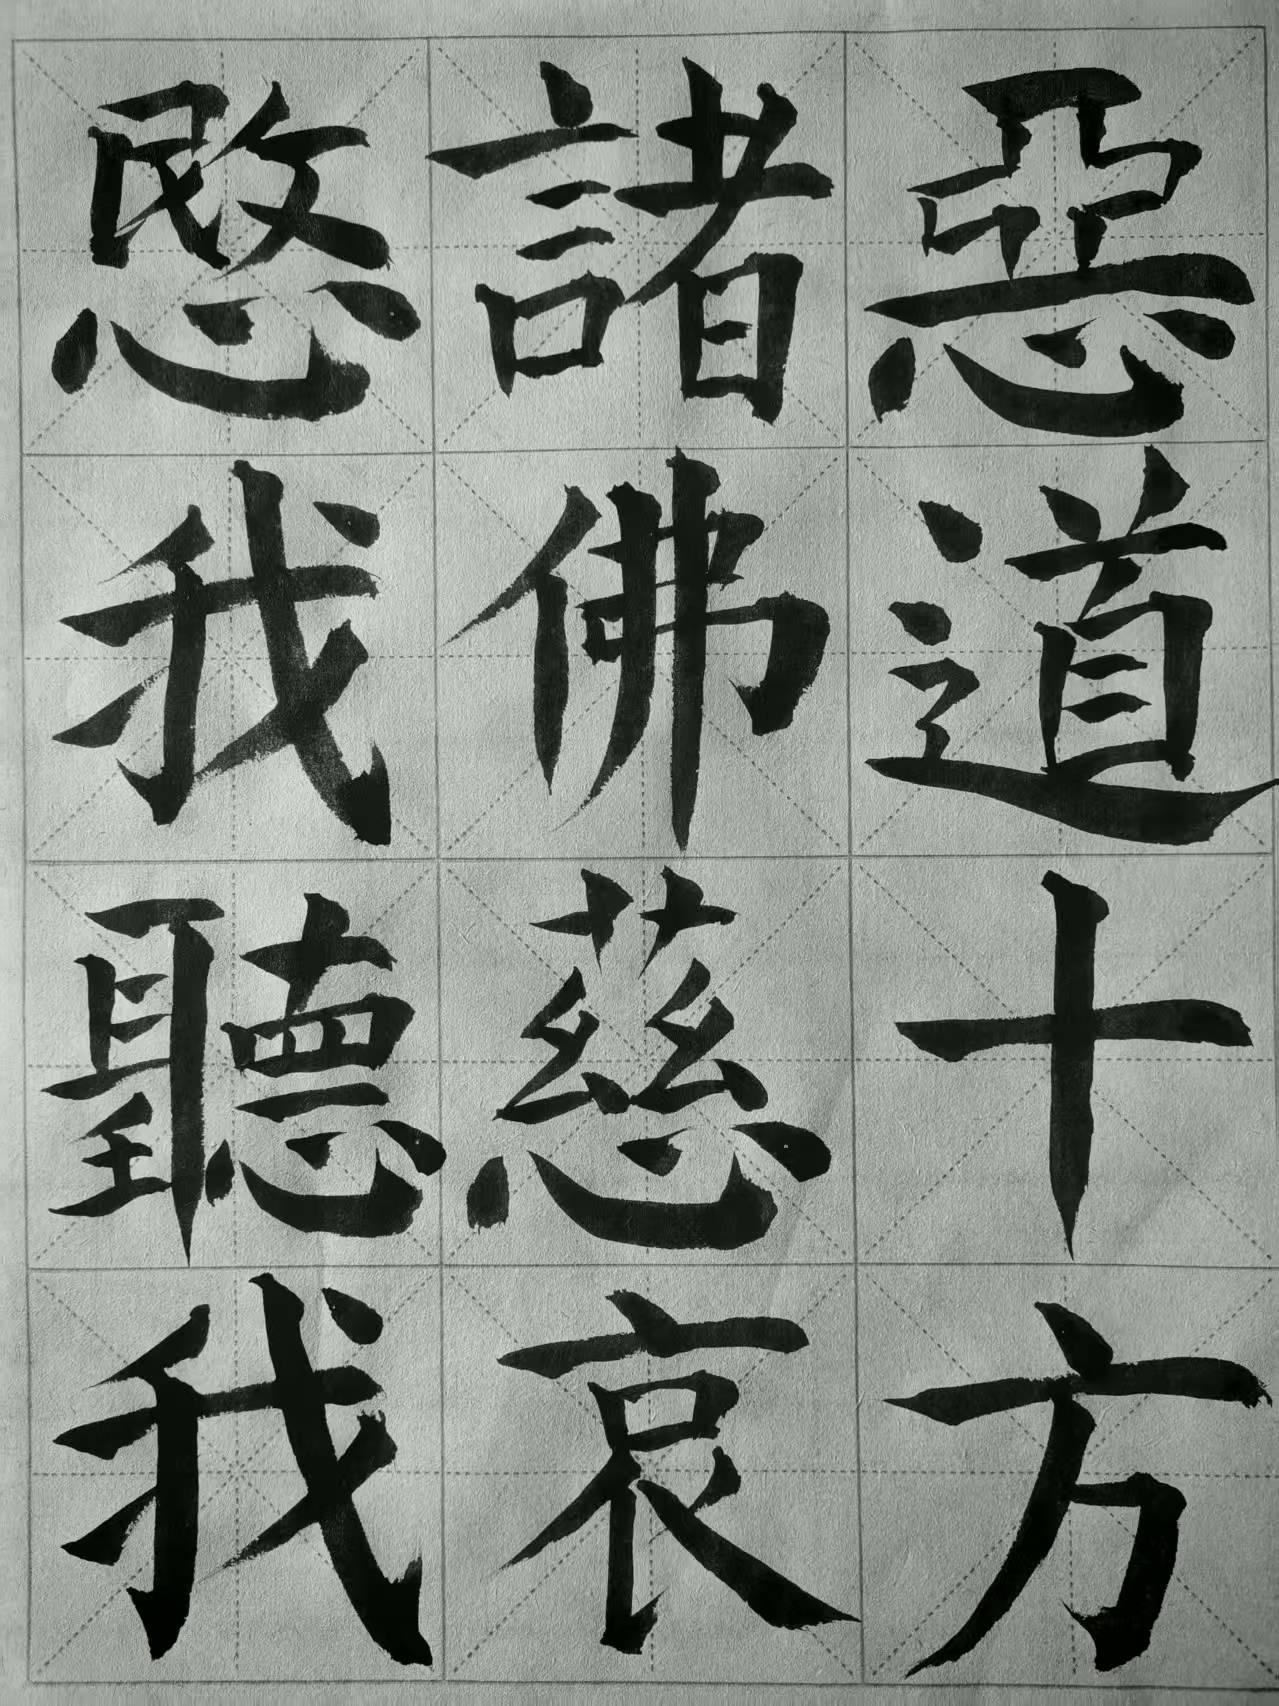 惡道十方
諸佛慈哀
愍我聽我